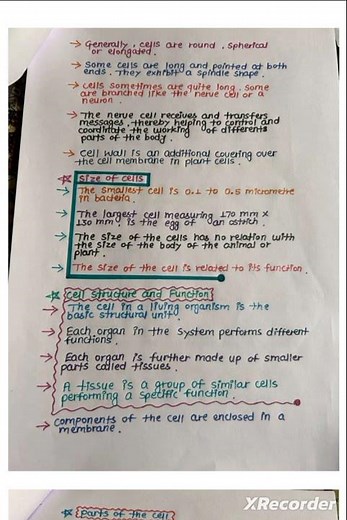 → Generally, cells are round, spherical
or elongated.
→ Some cells are long and pointed at both
ends. They exhibit a spindle shape.
→ cells sometimes are quite long. Some
are branched like the nerve cell or a
neuron.
→ The nerve cell receives and transfers
messages, thereby helping to control and
coordinate the working of differents
parts of the body.
→ Cell wall is an additional covering over
the cell membrane in plant cells.
Size of cells
→ The smallest cell is 0.1 to 0.5 micrometre
in bacteria.
→ The largest cell measuring 170 mm ×
130 mm, is the egg of an ostrich.
→ The size of the cells has no relation with
the size of the body of the animal or
plant.
→ The size of the cell is related to its function.
Cell structure and Function
→ The cell in a living organism is the
basic structural unit.
→ Each organ in the System performs different
functions.
→ Each organ is further made up of smaller
parts called tissues.
→ A tissue is a group of similar cells
performing a specific function.
→ components of the cell are enclosed in a
membrane.
XRecorder
Parts of the cell